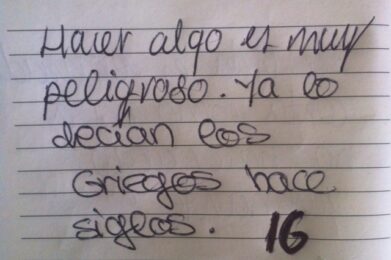 Hacer algo es muy
peligroso. Ya lo
decían los
Griegos hace
siglos. 16